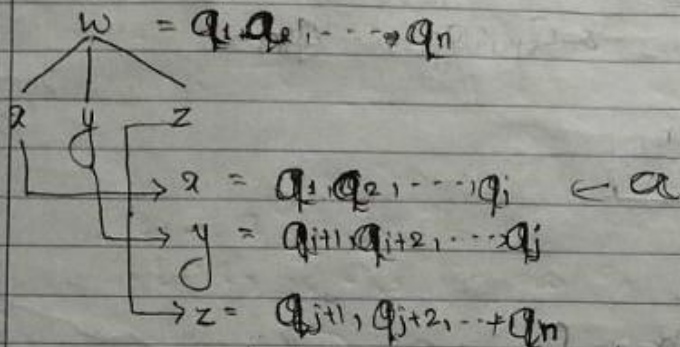 w = q1, q2, ----, qn
x y z
x = q1, q2, ----, qi ← a
y = qj+1, qj+2, ---- qj
z = qj+1, qj+2, --+ qn